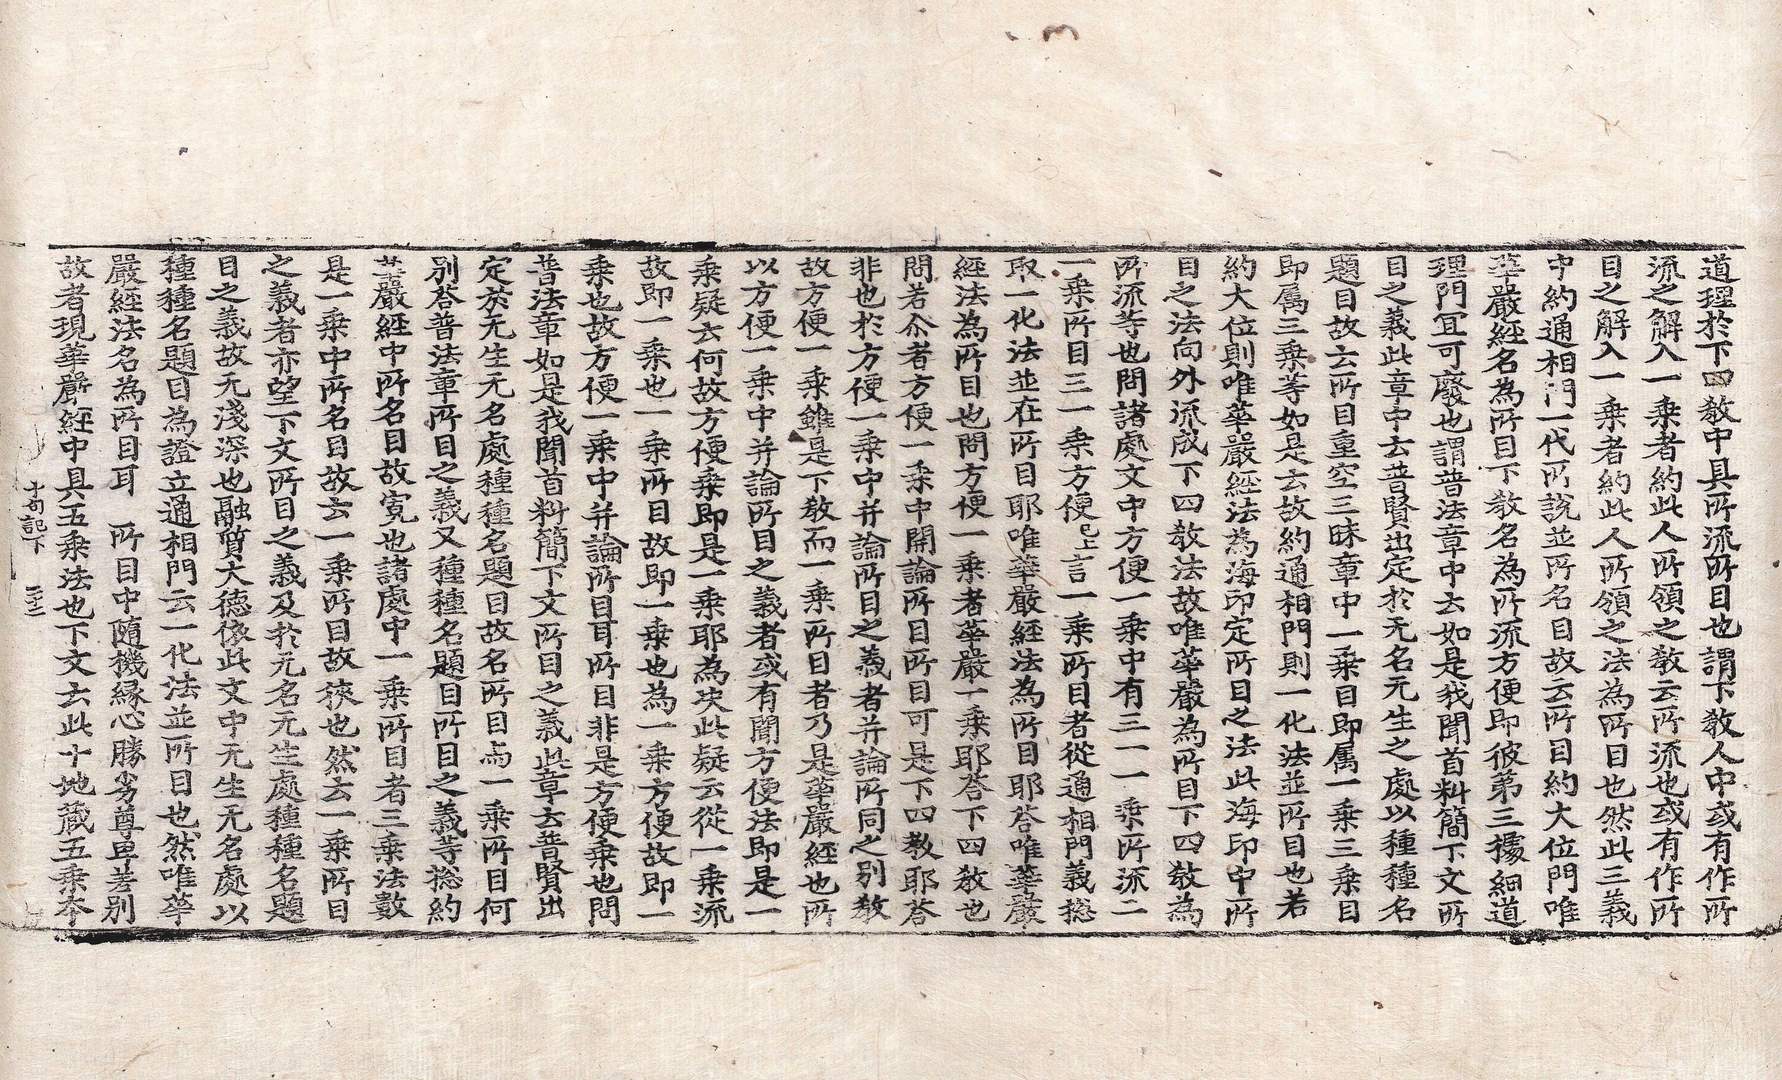 道理於下四教中具所流所目也謂下教人中或有作所
流之解入一乘者約此人所領之教云所流也或有作所
目之解入一乘者約此人所領之法為所目也然此三義
中約通相門一代所說並所名目故云所目約大位門唯
華嚴經名為所目下教名為所流方便即彼第三據細道
理門冝可廢也謂普法章中云如是我聞首料簡下文所
目之義此章中云普賢出定於无名无生之處以種種名
題目故云所目重空三昧章中一乘目即属一乘三乘目
即属三乘等如是云故約通相門則一化法並所目也若
約大位則唯華嚴經法為海印定所目之法此海印中所
目之法向外流成下四教法故唯華嚴為所目下四教為
所流等也問諸處文中方便一乘中有三一一乘所流二
一乘所目三一乘方便已上言一乘所目者從通相門義捴
取一化法並在所目耶唯華嚴經法為所目耶荅唯華嚴
經法為所目也問方便一乘者華嚴一乘耶荅下四教也
問若尒者方便一乘中開論所目所目可是下四教耶荅
非也於方便一乘中并論所目之義者并論所同之別教
故方便一乘雖是下教而一乘所目者乃是華嚴經也所
以方便一乘中并論所目之義者或有聞方便法即是一
乘疑云何故方便乘即是一乘耶為决此疑云從一乘流
故即一乘也一乘所目故即一乘也為一乘方便故即一
乘也故方便一乘中并論所目耳所目非是方便乘也問
普法章如是我聞首料簡下文所目之義此章云普賢出
定於无生无名處種種名題目故名所目焉一乘所目何
別荅普法章所目之義又種種名題目所目之義等捴約
華嚴經中所名目故寬也諸處中一乘所目者三乘法數
是一乘中所名目故云一乘所目故狹也然云一乘所目
之義者亦望下文所目之義及於无名无生處種種名題
目之義故无淺深也融質大德依此文中无生无名處以
種種名題目為證立通相門云一化法並所目也然唯華
嚴經法名為所目耳　所目中隨機緣心勝劣尊卑差別
故者現華嚴經中具五乘法也下文云此十地藏五乘夲
十句記下　二十二